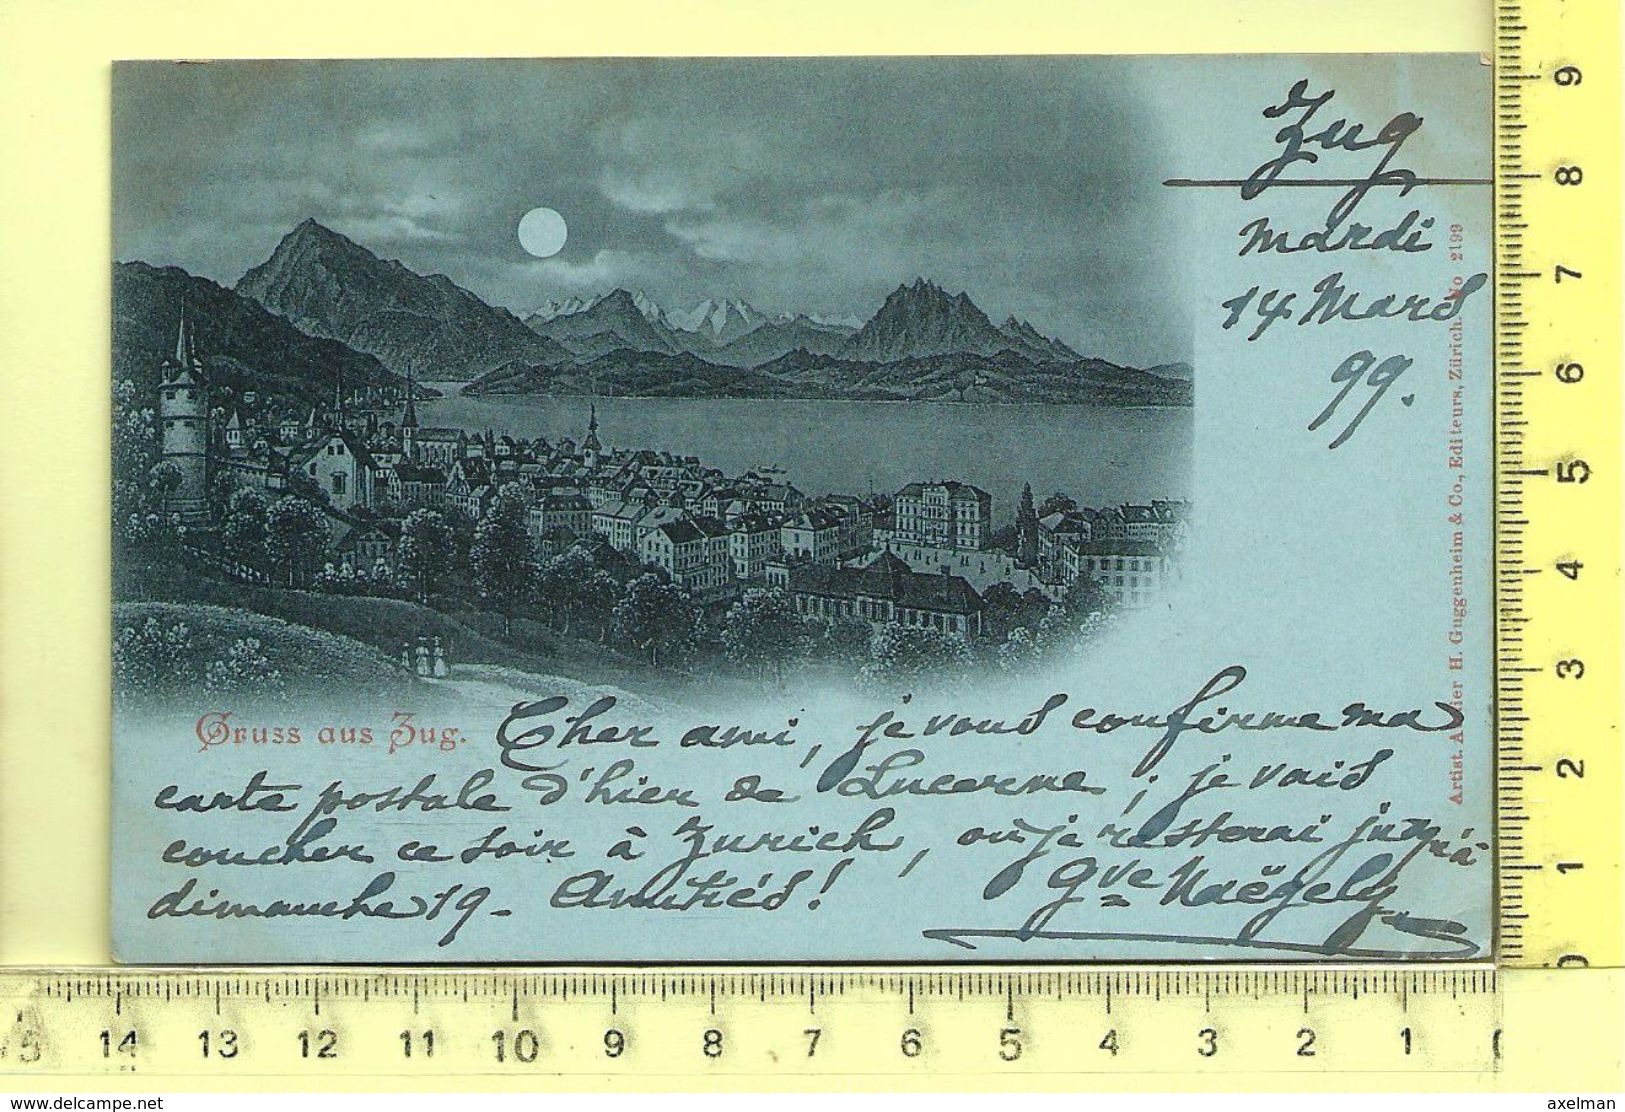 Zug
mardi
14 Mars
99.
Artist. Atelier H. Guggenheim & Co., Editeurs, Zürich No 2199
Gruss aus Zug.
Cher ami, je vous confirme ma
carte postale d'hier de Lucerne ; je vais
coucher ce soir à Zurich, où je resterai jusqu'à
dimanche 19. Amitiés! Gve Naëgely
9
8
7
6
5
4
3
2
1
0
15 14 13 12 11 10 9 8 7 6 5 4 3 2 1 0
www.delcampe.net
axelman